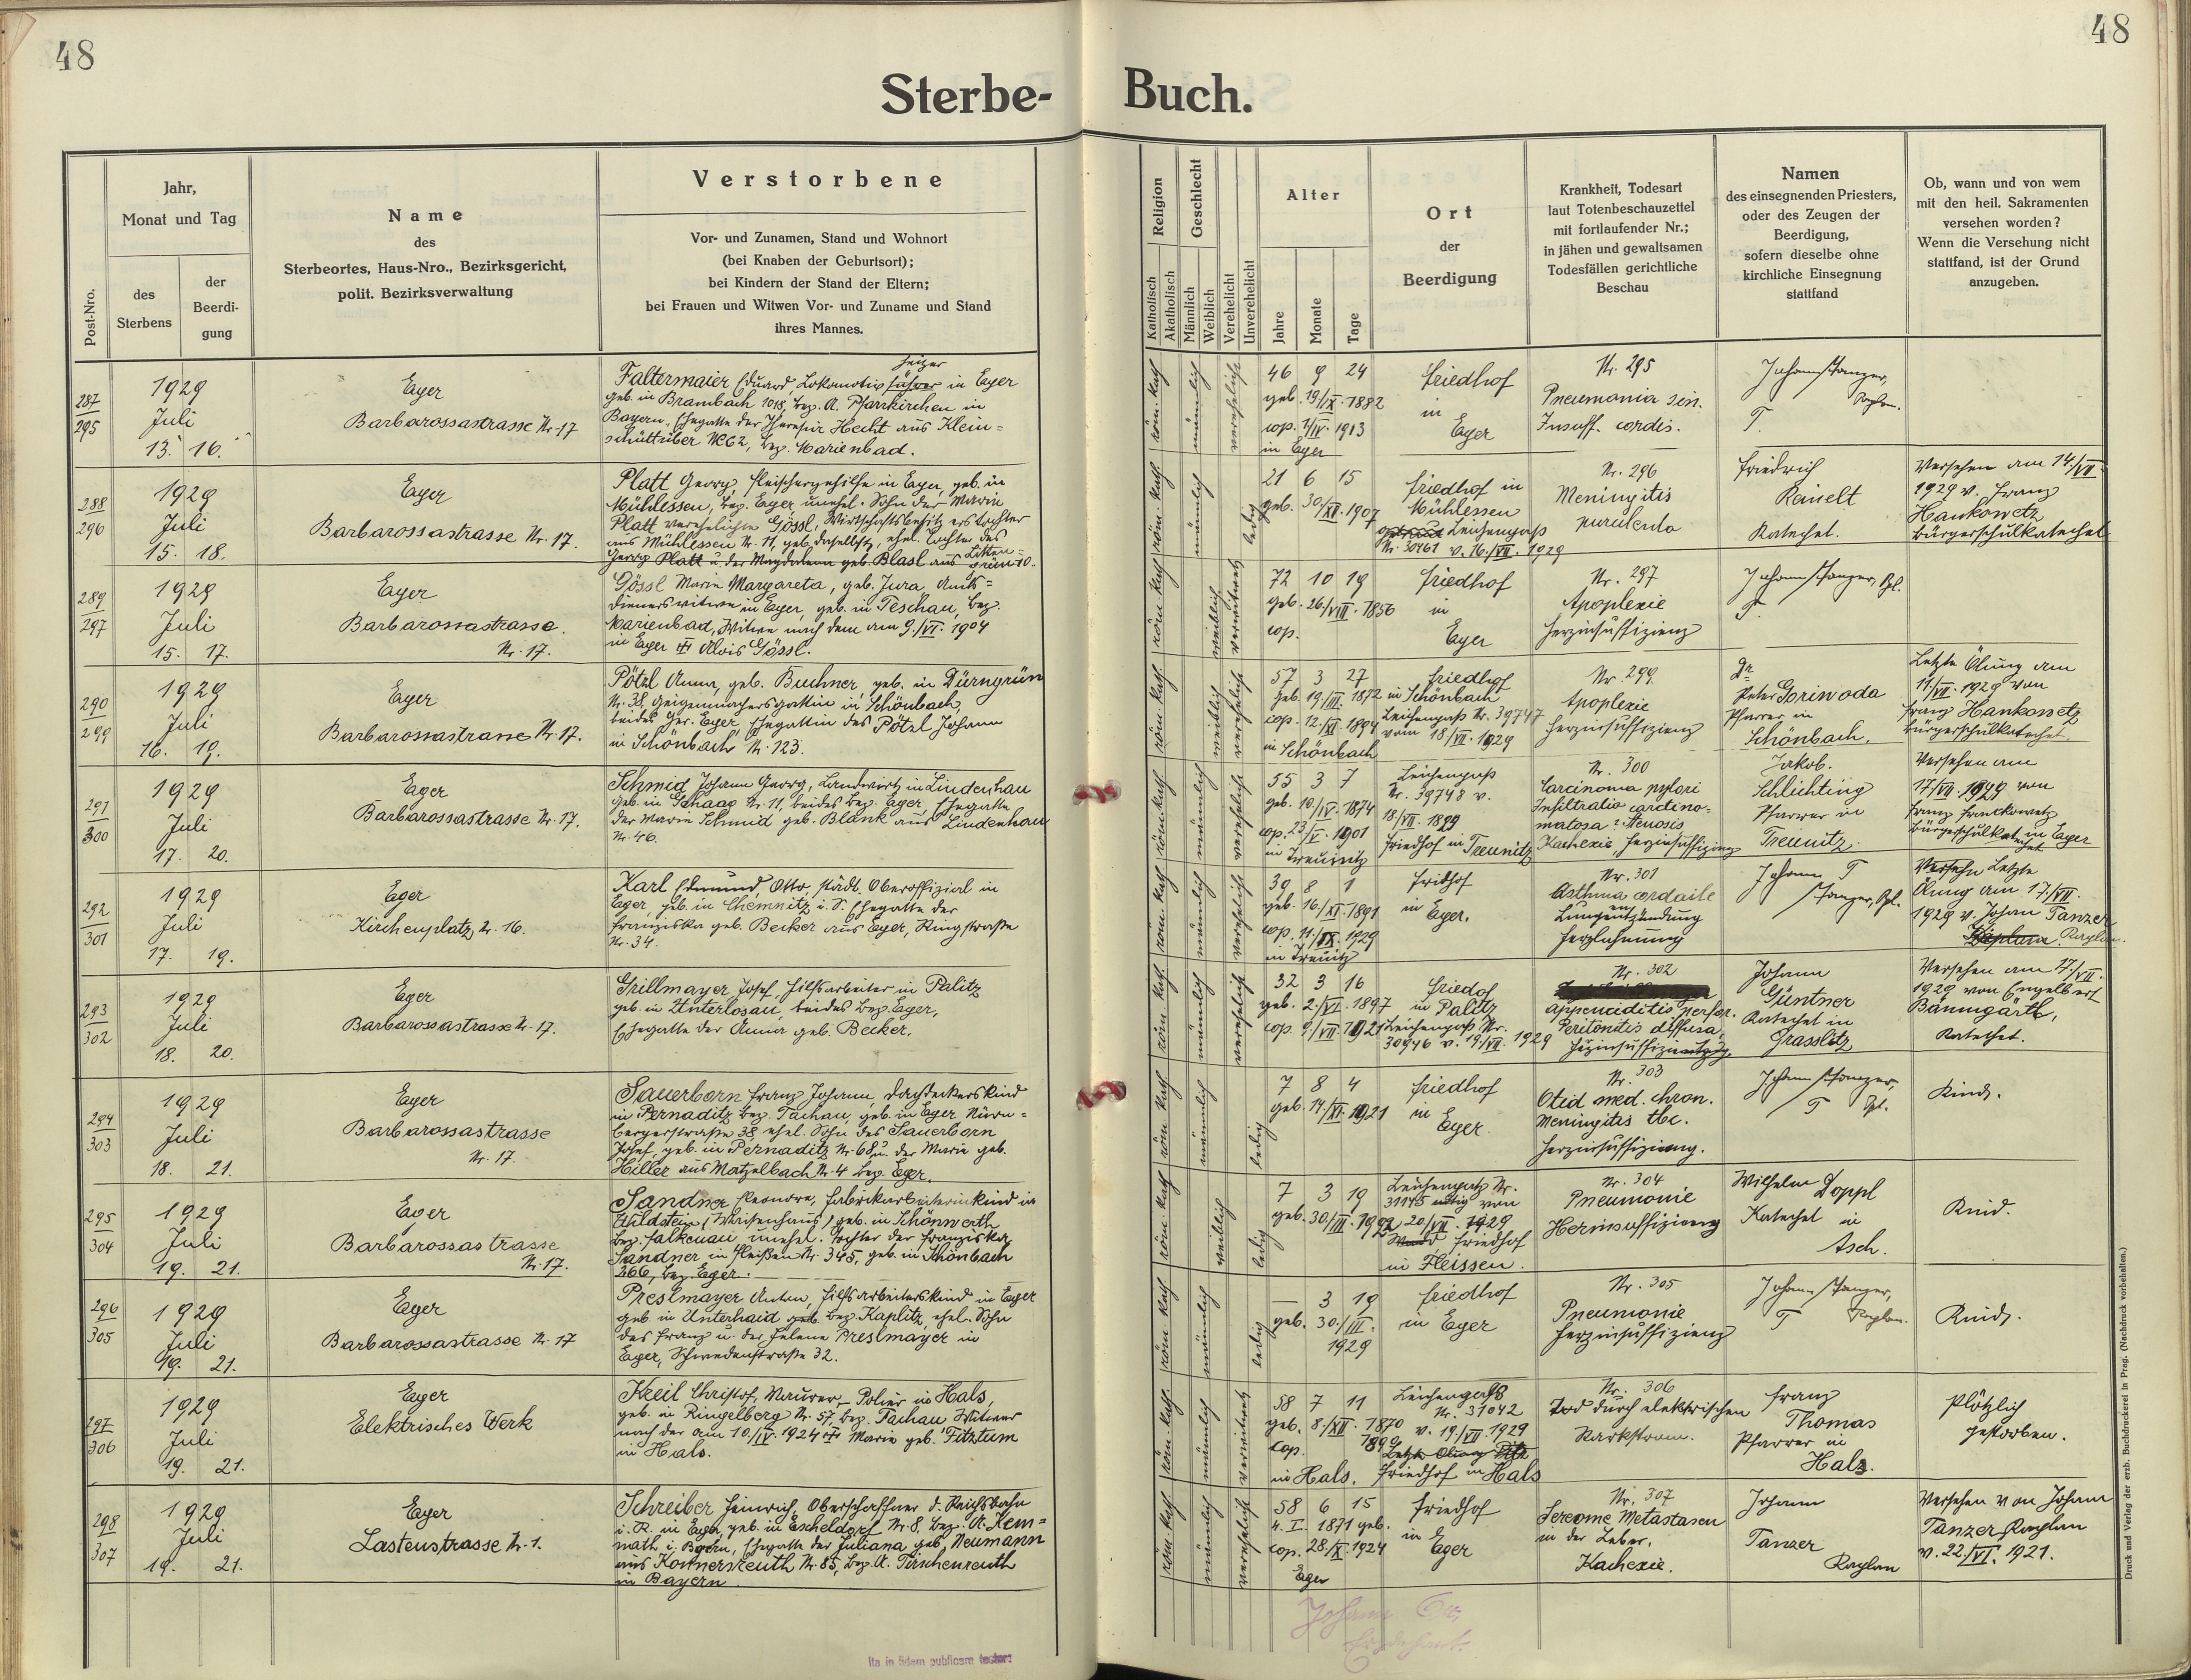 48
48
Sterbe-
Buch.
Post-Nro.
Jahr,
Monat und Tag
des
Sterbens
der
Beerdi-
gung
Name
des
Sterbeortes, Haus-Nro., Bezirksgericht,
polit. Bezirksverwaltung
Verstorbene
Vor- und Zunamen, Stand und Wohnort
(bei Knaben der Geburtsort);
bei Kindern der Stand der Eltern;
bei Frauen und Witwen Vor- und Zuname und Stand
ihres Mannes.
Religion
Katholisch
Akatholisch
Geschlecht
Männlich
Weiblich
Verehelicht
Unverehelicht
Alter
Jahre
Monate
Tage
Ort
der
Beerdigung
Krankheit, Todesart
laut Totenbeschauzettel
mit fortlaufender Nr.;
in jähen und gewaltsamen
Todesfällen gerichtliche
Beschau
Namen
des einsegnenden Priesters,
oder des Zeugen der
Beerdigung,
sofern dieselbe ohne
kirchliche Einsegnung
stattfand
Ob, wann und von wem
mit den heil. Sakramenten
versehen worden?
Wenn die Versehung nicht
stattfand, ist der Grund
anzugeben.
287
295
1929
Juli
13. 16.
Eger
Barbarossastrasse Nr. 17
heizer
Faltermaier Eduard, Lokomotivführer in Eger
geb. in Brambach 1018, bez. A. Pfarrkirchen in
Bayern, Ehegatte der Theresia Hecht aus Klein=
schüttüber No 62, bez. Marienbad.
röm. kath.
männlich
verehelicht
46 9 24
geb. 19/IX. 1882
cop. 7/IV. 1913
in Eger
Friedhof
in
Eger
Nr. 295
Pneumonia sin.
Insuff. cordis.
Johann Tanzer,
Kaplan.
T.
288
296
1929
Juli
15. 18.
Eger
Barbarossastrasse Nr. 17.
Platt Georg, Fleischergehilfe in Eger, geb. in
Mühlessen, bez. Eger, unehel. Sohn der Maria
Platt verehelichte Gössl, Wirtschaftsbesitzerstochter
aus Mühlessen Nr. 11, geb. daselbst, ehel. Tochter des
Georg Platt u. der Magdalena geb. Blasl aus Litten=
grün 10.
röm. kath.
männlich
ledig
21 6 15
geb. 30/XII. 1907
Friedhof in
Mühlessen
Leichenpaß
Nr. 30461 v. 16./VII. 1929
Nr. 296
Meningitis
purulenta
Friedrich
Reinelt
Katechet.
Versehen am 14/VII.
1929 v. Franz
Hankowetz
Bürgerschulkatechet
289
297
1929
Juli
15. 17.
Eger
Barbarossastrasse.
Nr. 17.
Gössl Maria Margareta, geb. Jura, Amts=
dienerswitwe in Eger, geb. in Teschau, bez.
Marienbad, Witwe nach dem am 9./VI. 1904
in Eger † Alois Gössl.
röm. kath.
weiblich
verwitwet
72 10 19
geb. 26./VIII. 1856
cop.
Friedhof
in
Eger
Nr. 297
Apoplexie
Herzinsuffizienz
Johann Tanzer, Kpl.
T.
290
299
1929
Juli
16. 19.
Eger
Barbarossastrasse Nr. 17.
Pötzl Anna, geb. Buchner, geb. in Dürngrün
Nr. 38, Geigenmachersgattin in Schönbach,
beides Ger. Eger, Ehegattin des Pötzl Johann
in Schönbach Nr. 123.
röm. kath.
weiblich
verehelicht
57 3 27
geb. 19/III. 1872
cop. 12./XI. 1894
in Schönbach
Friedhof
in Schönbach
Leichenpaß Nr. 39747
vom 18/VII. 1929
Nr. 299.
Apoplexie
Herzinsuffizienz
Dr
Peter Goriwoda
Pfarrer in
Schönbach.
Letzte Ölung am
11/VII. 1929 von
Franz Hankowetz
Bürgerschulkatechet.
291
300
1929
Juli
17. 20.
Eger
Barbarossastrasse Nr. 17.
Schmid Johann Georg, Landwirt in Lindenhau
geb. in Gehaag Nr. 11, beides bez. Eger, Ehegatte
der Maria Schmid geb. Blank aus Lindenhau
Nr. 46.
röm. kath.
männlich
verehelicht
55 3 7
geb. 10./IV. 1874
cop. 23/V. 1901
in Treunitz
Leichenpaß
Nr. 39748 v.
18/VII. 1929
Friedhof in Treunitz
Nr. 300
Carcinoma pylori
Infiltratio carcino=
matosa: Stenosis
Kachexie, Herzinsuffizienz
Jakob.
Schlichting
Pfarrer in
Treunitz.
Versehen am
17/VII. 1929 von
Franz Hankowetz
Bürgerschulkatechet in Eger
292
301
1929
Juli
17. 19.
Eger
Kirchenplatz Nr. 16.
Karl Edmund, Otto, städt. Oberoffizial in
Eger, geb. in Chemnitz i. S. Ehegatte der
Franziska geb. Becker aus Eger, Ringstraße
Nr. 34.
röm. kath.
männlich
verehelicht
39 8 1
geb. 16./XI. 1891
cop. 11./IX. 1929
in Treunitz
Fridhof
in Eger.
Nr. 301
Asthma cordaile
Lungenentzündung
Herzlähmung
Johann T
Tanzer, Kpl.
Versehn Letzte
Ölung am 17./VII.
1929 v. Johan Tanzer
Kaplan.
293
302
1929
Juli
18. 20.
Eger
Barbarossastrasse Nr. 17.
Grillmayer Josef, Hilfsarbeiter in Palitz
geb. in Unterlosau, beides bez. Eger,
Ehegatte der Anna geb. Becker.
röm. kath.
männlich
verehelicht
32 3 16
geb. 2./VI. 1897
cop. 9/VII. 1921
Friedof
in Palitz
Leichenpaß Nr.
30946 v. 19./VII. 1929
Nr. 302
appendicitis perfor.
Peritonitis diffusa,
Herzinsuffizienz
Johann
Güntner
Katechet in
Grasslitz
Versehen am 17/VII.
1929 von Engelbert
Bäumgärtl,
Katechet.
294
303
1929
Juli
18. 21.
Eger
Barbarossastrasse
Nr. 17.
Sauerborn Franz Johann, Dachdeckerskind
in Pernaditz bez. Tachau, geb. in Eger Nürn=
bergerstraße 38, ehel. Sohn des Sauerborn
Josef, geb. in Pernaditz Nr. 68 u. der Maria geb.
Hiller aus Matzelbach Nr. 4 bez. Eger.
röm. kath.
männlich
ledig
7 8 4
geb. 14/XI. 1921
Friedhof
in
Eger.
Nr. 303
Otid med. chron.
Meningitis tbc.
Herzinsuffizienz.
Johann Tanzer,
T Kpl.
Kind.
295
304
1929
Juli
19. 21.
Eger
Barbarossastrasse
Nr. 17.
Sandner Eleonore, Fabrikarbeiterinkind in
Wildstein (Waisenhaus) geb. in Schönwerth
bez. Falkenau unehel. Tochter der Franziska
Sandner in Fleißen Nr. 345, geb. in Schönbach
266, bez. Eger.
röm. kath.
weiblich
ledig
7 3 19
geb. 30./III. 1922
Leichenpaß Nr.
31145 von
20./VII. 1929
Friedhof
in Fleissen.
Nr. 304
Pneumonie
Herinsuffizienz
Wilhelm Doppl
Katechet in
Asch.
Kind.
296
305
1929
Juli
19. 21.
Eger
Barbarossastrasse Nr. 17
Preslmayer Anton, Hilfsarbeiterskind in Eger
geb. in Unterhaid bez. Kaplitz, ehel. Sohn
des Franz u. der Helene Preslmayer in
Eger, Schwedenstraße 32.
röm. kath.
männlich
ledig
— 3 19
geb. 30./III.
1929
Friedhof
in Eger
Nr. 305
Pneumonie
Herzinsuffizienz
Johann Tanzer,
T Kaplan.
Kind.
297
306
1929
Juli
19. 21.
Eger
Elektrisches Werk
Kreil Christof, Maurer-Polier in Hals,
geb. in Ringelberg Nr. 57, bez. Tachau Witwer
nach der am 10./IV. 1924 † Maria geb. Fitztum
in Hals.
röm. kath.
männlich
verwitwet
58 7 11
geb. 8./XII. 1870
cop. 1890
in Hals.
Leichenpaß
Nr. 31042
v. 19./VII. 1929
Friedhof in Hals
Nr. 306
Tod durch elektrischen
Starkstrom.
Franz
Thomas
Pfarrer in
Hals.
Plötzlich
gestorben.
298
307
1929
Juli
19. 21.
Eger
Lastenstrasse Nr. 1.
Schreiber Heinrich, Oberschaffner d. Reichsbahn
i. R. in Eger, geb. in Escheldorf Nr. 8, bez. A. Kem=
nath i. Bayern, Ehegatte der Juliana geb. Neumann
aus Konnersreuth Nr. 85, bez. A. Tirschenreuth
in Bayern.
röm. kath.
männlich
verehelicht
58 6 15
4. I. 1871 geb.
cop. 28./X. 1924
Eger
Friedhof
in
Eger
Nr. 307
Metastasen
in der Leber.
Kachexie.
Johann
Tanzer
Kaplan
Versehen von Johann
Tanzer Kaplan
v. 22./VI. 1921.
Ita in fidem publicam testor:
Johann
Druck und Verlag der erzb. Buchdruckerei in Prag. (Nachdruck vorbehalten.)